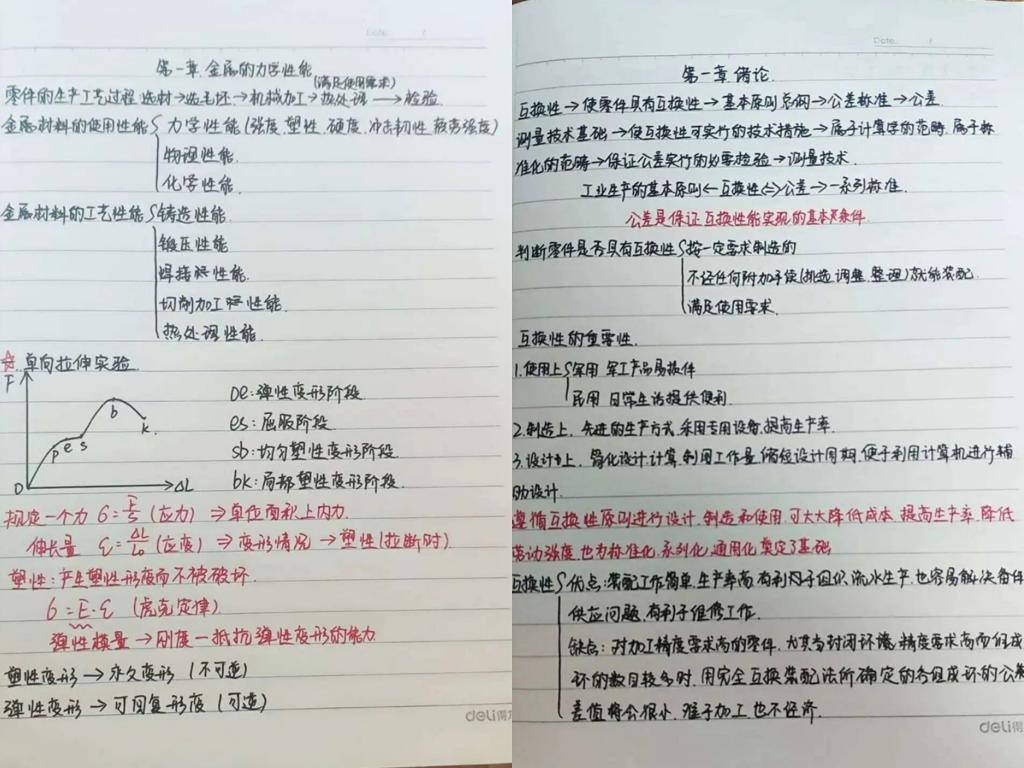 Date
第一章.金属的力学性能
(满足使用需求)
零件的生产工艺过程:选材→选毛坯→机械加工→热处理→检验.
金属材料的使用性能{力学性能(强度.塑性.硬度.冲击韧性.疲劳强度)
物理性能.
化学性能.
金属材料的工艺性能{铸造性能.
锻压性能
焊接性能.
切削加工性能.
热处理性能.
☆.单向拉伸实验.
F
b
k.
e s
p
O
ΔL
oe:弹性变形阶段
es:屈服阶段
sb:均匀塑性变形阶段.
bk:局部塑性变形阶段.
规定一个力 σ=F/S (应力) ⇒单位面积上内力.
伸长量 ε=ΔL/L₀ (应变) ⇒变形情况 →塑性(拉断时)
塑性:产生塑性形变而不被破坏.
σ=E·ε (虎克定律)
弹性模量→刚度—抵抗弹性变形的能力.
塑性变形→永久变形 (不可逆)
弹性变形→可回复形变 (可逆)
deli得力
Date
第一章 绪论.
互换性→使零件具有互换性→基本原则总纲→公差标准→公差.
测量技术基础→使互换性可实行的技术措施→属于计算学的范畴.属于标
准化的范畴→保证公差实行的必要检验→测量技术.
工业生产的基本原则←互换性⇔公差→一系列标准.
公差是保证互换性能实现的基本条件.
判断零件是否具有互换性{按一定要求制造的
不经任何附加手续(挑选.调整.整理)就能装配.
满足使用需求.
互换性的重要性.
1.使用上{军用 军工产品易换件
民用 日常生活提供便利.
2.制造上.先进的生产方式.采用专用设备.提高生产率.
3.设计上.简化设计.计算.制用工作量.缩短设计周期.便于利用计算机进行辅
助设计.
遵循互换性原则进行设计.制造和使用.可大大降低成本.提高生产率.降低
劳动强度.也为标准化.系列化.通用化奠定了基础
互换性{优点:装配工作简单.生产率高.有利于组织流水生产.也容易解决备件
供应问题.有利于维修工作.
缺点:对加工精度要求高的零件.尤其当封闭环境.精度要求高而组成
环的数目较多时.用完全互换装配法所确定的各组成环的公
差值将会很小.难于加工.也不经济.
deli得